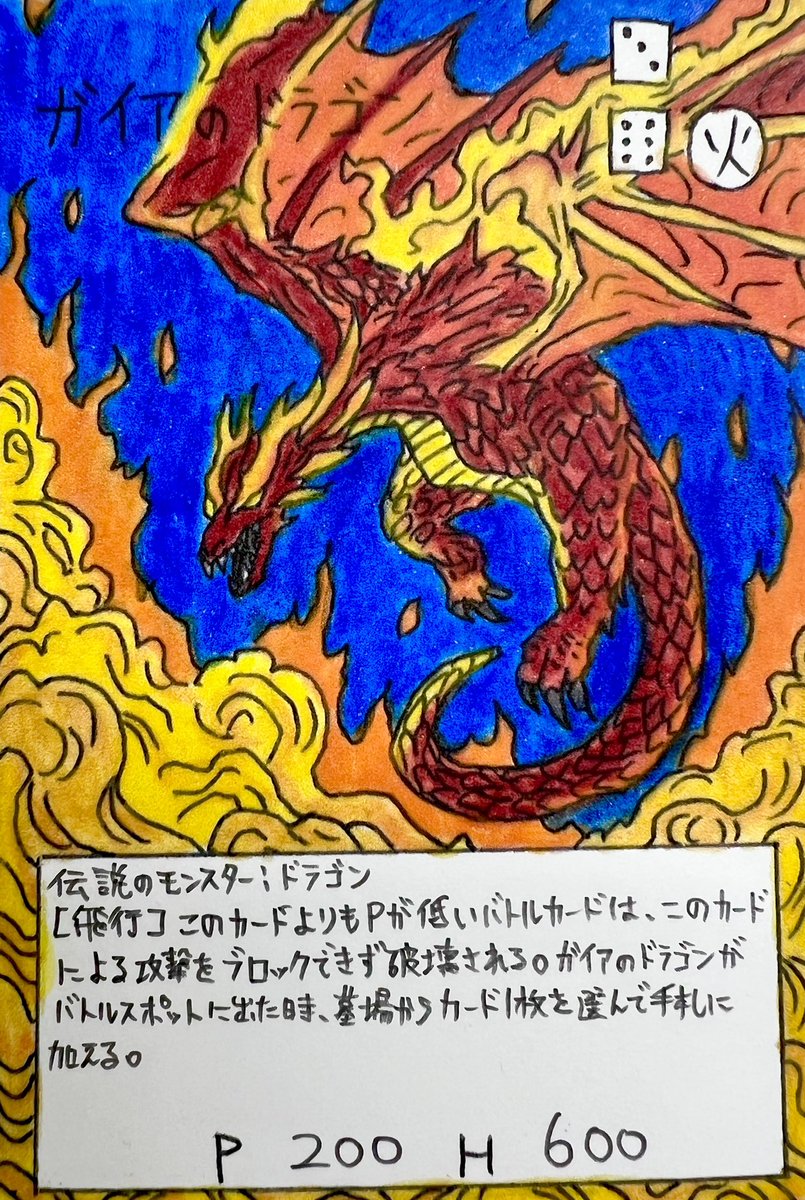 ガイアのドラゴン
火
伝説のモンスター:ドラゴン
[飛行]このカードよりもPが低いバトルカードは、このカード
による攻撃をブロックできず破壊される。ガイアのドラゴンが
バトルスポットに出た時、墓場からカード1枚を選んで手札に
加える。
P 200 H 600